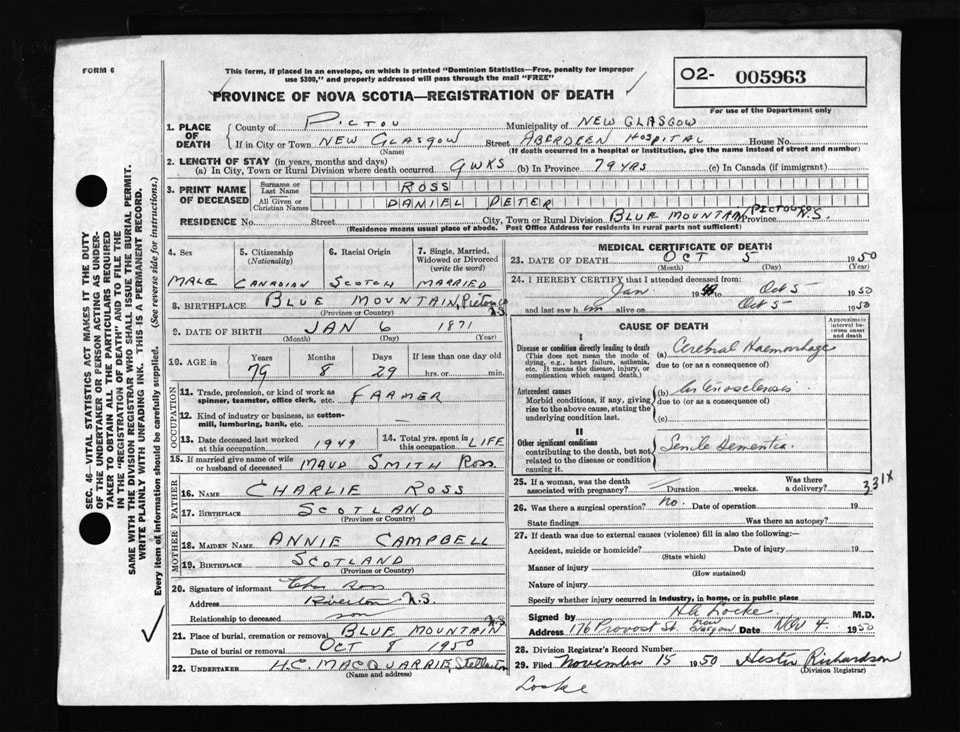 FORM 6
This form, if placed in an envelope, on which is printed "Dominion Statistics—Free, penalty for improper
use $300," and properly addressed will pass through the mail "FREE"
O2- 005963
For use of the Department only
PROVINCE OF NOVA SCOTIA—REGISTRATION OF DEATH
SEC. 46—VITAL STATISTICS ACT MAKES IT THE DUTY
OF THE UNDERTAKER OR PERSON ACTING AS UNDER-
TAKER TO OBTAIN ALL THE PARTICULARS REQUIRED
IN THE "REGISTRATION OF DEATH" AND TO FILE THE
SAME WITH THE DIVISION REGISTRAR WHO SHALL ISSUE THE BURIAL PERMIT.
WRITE PLAINLY WITH UNFADING INK. THIS IS A PERMANENT RECORD.
Every item of information should be carefully supplied. (See reverse side for instructions.)
1. PLACE OF DEATH
County of PICTOU Municipality of NEW GLASGOW
If in City or Town NEW GLASGOW Street ABERDEEN HOSPITAL House No.
(Name) (If death occurred in a hospital or institution, give the name instead of street and number)
2. LENGTH OF STAY (in years, months and days)
(a) In City, Town or Rural Division where death occurred 9WKS (b) In Province 79 YRS (c) In Canada (if immigrant)
3. PRINT NAME OF DECEASED
Surname or Last Name ROSS
All Given or Christian Names DANIEL PETER
RESIDENCE No. Street City, Town or Rural Division BLUE MOUNTAIN, PICTOU CO Province N.S.
(Residence means usual place of abode. Post Office Address for residents in rural parts not sufficient)
4. Sex MALE
5. Citizenship (Nationality) CANADIAN
6. Racial Origin SCOTCH
7. Single, Married, Widowed or Divorced (write the word) MARRIED
8. BIRTHPLACE BLUE MOUNTAIN, Pictou Co N.S.
(Province or Country)
9. DATE OF BIRTH JAN 6 1871
(Month) (Day) (Year)
10. AGE in Years Months Days If less than one day old
79 8 29 hrs. or min.
OCCUPATION
11. Trade, profession, or kind of work as
spinner, teamster, office clerk, etc. FARMER
12. Kind of industry or business, as cotton-
mill, lumbering, bank, etc. —
13. Date deceased last worked at this occupation 1949
14. Total yrs. spent in this occupation LIFE
15. If married give name of wife
or husband of deceased MAUD SMITH Ross.
FATHER
16. NAME CHARLIE ROSS
17. BIRTHPLACE SCOTLAND
(Province or Country)
MOTHER
18. MAIDEN NAME ANNIE CAMPBELL
19. BIRTHPLACE SCOTLAND
(Province or Country)
20. Signature of informant Chas Ross
Address Riverton N.S.
Relationship to deceased son
21. Place of burial, cremation or removal BLUE MOUNTAIN N.S.
Date of burial or removal OCT 8 1950
22. UNDERTAKER H.C. MACQUARRIE, Stellarton
(Name and address)
MEDICAL CERTIFICATE OF DEATH
23. DATE OF DEATH OCT 5 1950
(Month) (Day) (Year)
24. I HEREBY CERTIFY that I attended deceased from:
Jan. 19 to Oct 5 1950
and last saw him alive on Oct 5 1950
CAUSE OF DEATH
Approximate interval between onset and death
I
Disease or condition directly leading to death
(This does not mean the mode of
dying, e.g., heart failure, asthenia,
etc. It means the disease, injury, or
complication which caused death.)
(a) Cerebral Haemorrhage
due to (or as a consequence of)
Antecedent causes
Morbid conditions, if any, giving
rise to the above cause, stating the
underlying condition last.
(b) Arteriosclerosis
due to (or as a consequence of)
(c)
II
Other significant conditions
contributing to the death, but not
related to the disease or condition
causing it.
Senile Dementia.
25. If a woman, was the death
associated with pregnancy? Duration weeks. Was there a delivery?
331X
26. Was there a surgical operation? no. Date of operation 19
State findings Was there an autopsy?
27. If death was due to external causes (violence) fill in also the following:—
Accident, suicide or homicide? Date of injury 19
(State which)
Manner of injury
(How sustained)
Nature of injury
Specify whether injury occurred in industry, in home, or in public place
Signed by Locke M.D.
Address 176 Provost St. New Glasgow Date Nov 4. 1950
28. Division Registrar's Record Number
29. Filed November 15 1950 Hester Richardson
(Division Registrar)
Locke